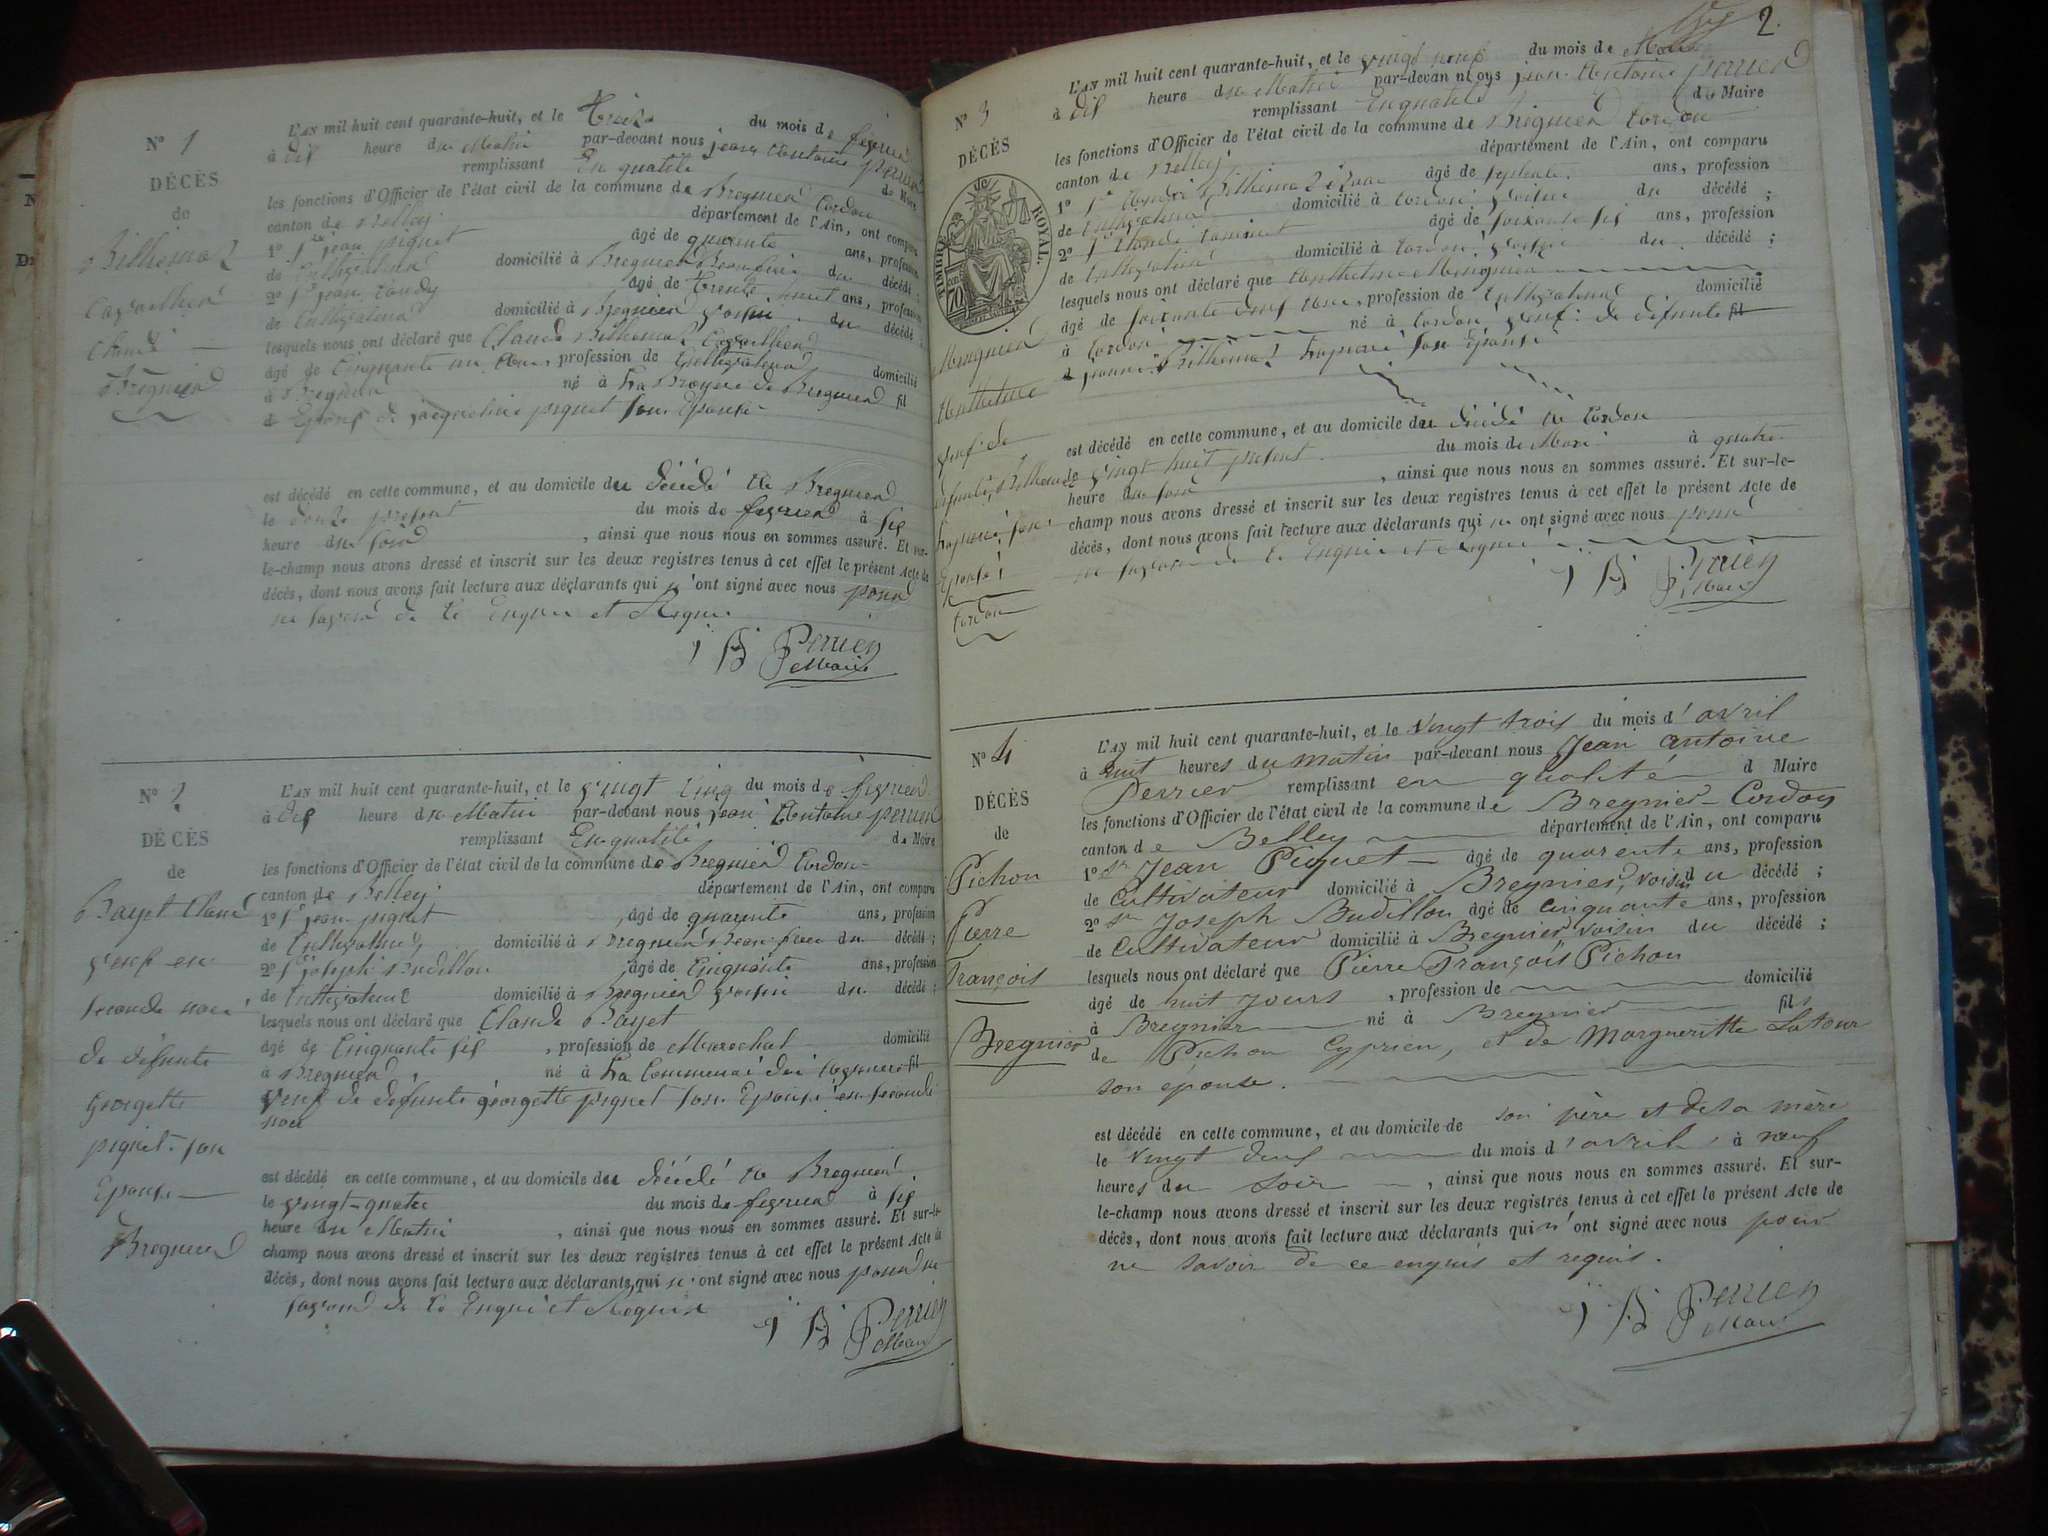 N° 1
DÉCÈS
de
Bilhomaz
Cavallier
Claude
Bregnier
L'AN mil huit cent quarante-huit, et le treize du mois de fevrier
à dix heure du Matin par-devant nous jean Antoine perrier
remplissant En qualité de Maire
les fonctions d'Officier de l'état civil de la commune de Bregnier Cordon
canton de Belley département de l'Ain, ont comparu
1° Sr jean piquet âgé de quarente ans, profession
de Cultivateur domicilié à Bregnier Beaufrere du décédé ;
2° Sr jean âgé de trente huit ans, profession
de Cultivateur domicilié à Bregnier voisin du décédé ;
lesquels nous ont déclaré que Claude Bilhomaz Cavallier
âgé de Cinquante un Ans, profession de Cultivateur domicilié
à Bregnier né à La Bruyere de Bregnier fil
de Epoux de jacqueline piquet son Epouse
est décédé en cette commune, et au domicile du décédé de Bregnier
le douze présent du mois de fevrier à six
heure du soir , ainsi que nous nous en sommes assuré. Et sur-
le-champ nous avons dressé et inscrit sur les deux registres tenus à cet effet le présent Acte de
décès, dont nous avons fait lecture aux déclarants qui n'ont signé avec nous pour
ne savoir de ce Enquis et Requis
J A Perrier
Maire
N° 2
DÉCÈS
de
Bayet Claud
veuf en
seconde noce
de défunte
Georgette
piquet son
Epouse
Bregnier
L'AN mil huit cent quarante-huit, et le vingt cinq du mois de fevrier
à dix heure du Matin par-devant nous jean Antoine perrier
remplissant En qualité de Maire
les fonctions d'Officier de l'état civil de la commune de Bregnier Cordon
canton de Belley département de l'Ain, ont comparu
1° Sr jean piquet âgé de quarente ans, profession
de Cultivateur domicilié à Bregnier Beaufrere du décédé ;
2° Sr joseph Budillon âgé de Cinquante ans, profession
de Cultivateur domicilié à Bregnier voisin du décédé ;
lesquels nous ont déclaré que Claude Bayet
âgé de Cinquante six , profession de Marechal domicilié
à Bregnier né à La Commune de fil
veuf de défunte georgette piquet son Epouse en seconde
noce
est décédé en cette commune, et au domicile du décédé de Bregnier
le vingt-quatre du mois de fevrier à six
heure du Matin , ainsi que nous nous en sommes assuré. Et sur-le-
champ nous avons dressé et inscrit sur les deux registres tenus à cet effet le présent Acte de
décès, dont nous avons fait lecture aux déclarants qui n'ont signé avec nous pour ne
savoir de ce Enquis et Requis
J A Perrier
Maire
2.
N° 3
DÉCÈS
TIMBRE ROYAL.
Minguier
Anthelme
veuf de
défunte Bilhomaz
son
Epouse
Cordon
L'AN mil huit cent quarante-huit, et le vingt neuf du mois de Mars
à dix heure du Matin par-devan nous jean Antoine perrier
remplissant En qualité de Maire
les fonctions d'Officier de l'état civil de la commune de Bregnier Cordon
canton de Belley département de l'Ain, ont comparu
1° Sr André Bilhomaz âgé de septente ans, profession
de Cultivateur domicilié à Cordon voisin du décédé ;
2° Sr Claude âgé de soixante six ans, profession
de Cultivateur domicilié à Cordon voisin du décédé ;
lesquels nous ont déclaré que Anthelme Minguier
âgé de soixante deux Ans, profession de Cultivateur domicilié
à Cordon né à Cordon veuf de défunte fil
d jeanne Bilhomaz son Epouse
est décédé en cette commune, et au domicile du décédé de Cordon
le vingt huit présent du mois de Mars à quatre
heure du soir , ainsi que nous nous en sommes assuré. Et sur-le-
champ nous avons dressé et inscrit sur les deux registres tenus à cet effet le présent Acte de
décès, dont nous avons fait lecture aux déclarants qui n ont signé avec nous pour
ne savoir de ce Enquis et Requis
J A Perrier
Maire
N° 4
DÉCÈS
de
Pichon
Pierre
François
Bregnier
L'AN mil huit cent quarante-huit, et le vingt trois du mois d'avril
à huit heures du matin par-devant nous Jean antoine
Perrier remplissant en qualité d Maire
les fonctions d'Officier de l'état civil de la commune de Bregnier-Cordon
canton de Belley département de l'Ain, ont comparu
1° Sr Jean Piquet âgé de quarente ans, profession
de Cultivateur domicilié à Bregnier, voisin du décédé ;
2° Sr Joseph Budillon âgé de cinquante ans, profession
de Cultivateur domicilié à Bregnier voisin du décédé ;
lesquels nous ont déclaré que Pierre François Pichon
âgé de huit jours , profession de domicilié
à Bregnier né à Bregnier fils
de Pichon Cyprien, et de Margueritte Latour
son épouse.
est décédé en cette commune, et au domicile de son père et de sa mère
le vingt deux du mois d'avril à neuf
heures du Soir , ainsi que nous nous en sommes assuré. Et sur-
le-champ nous avons dressé et inscrit sur les deux registres tenus à cet effet le présent Acte de
décès, dont nous avons fait lecture aux déclarants qui n'ont signé avec nous pour
ne savoir de ce enquis et requis.
J A Perrier
Maire